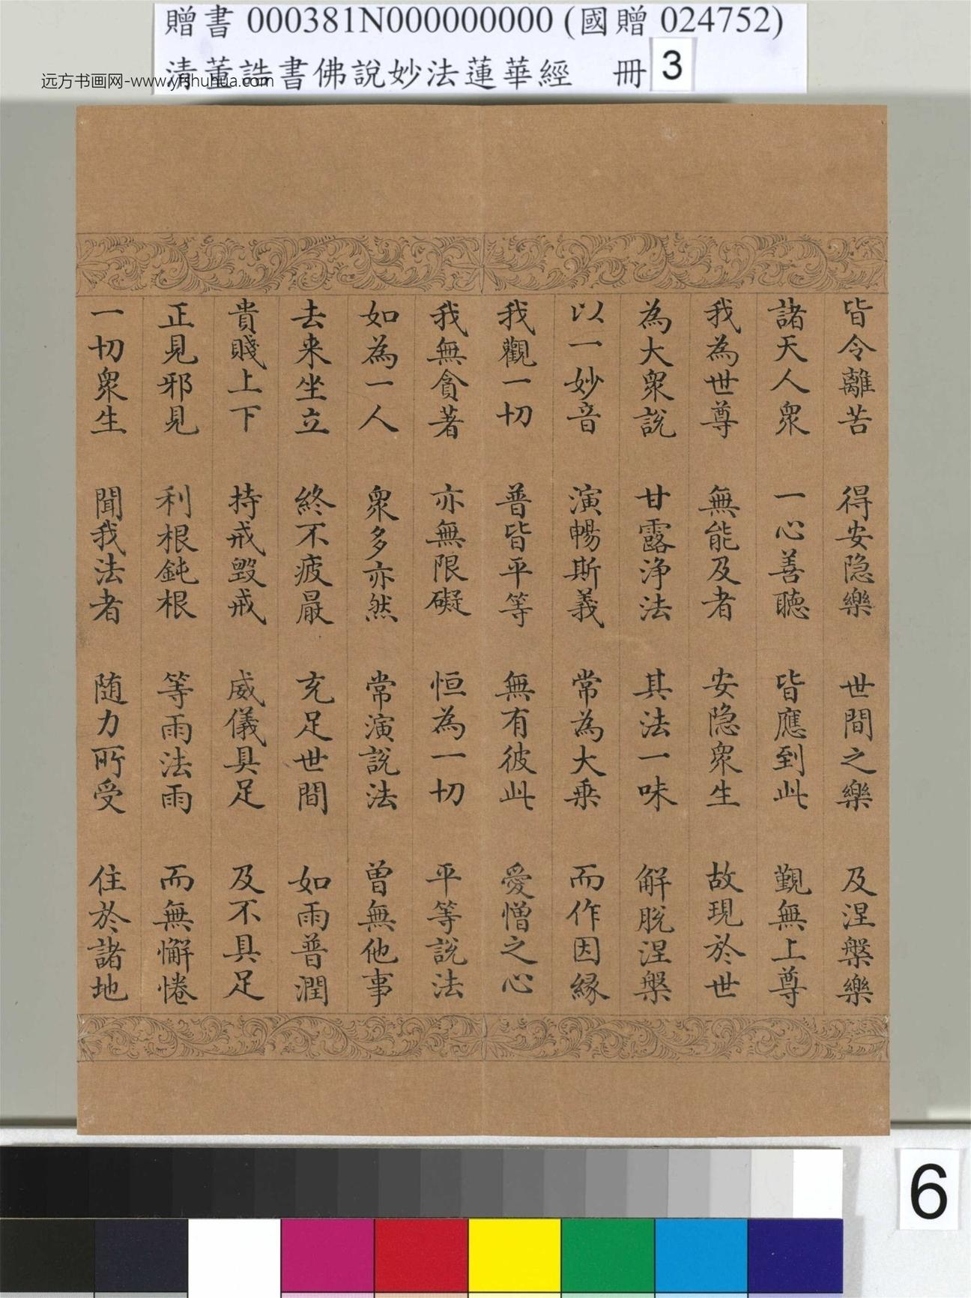 贈書 000381N000000000 (國贈 024752)
清董誥書佛說妙法蓮華經 冊 3
远方书画网-www.yfshuhua.com
皆令離苦 得安隐樂 世間之樂 及涅槃樂
諸天人衆 一心善聽 皆應到此 覲無上尊
我為世尊 無能及者 安隐衆生 故現於世
為大衆說 甘露淨法 其法一味 解脫涅槃
以一妙音 演暢斯義 常為大乘 而作因緣
我觀一切 普皆平等 無有彼此 愛憎之心
我無貪著 亦無限礙 恒為一切 平等說法
如為一人 衆多亦然 常演說法 曽無他事
去来坐立 終不疲猒 充足世間 如雨普潤
貴賤上下 持戒毀戒 威儀具足 及不具足
正見邪見 利根鈍根 等雨法雨 而無懈惓
一切衆生 聞我法者 随力所受 住於諸地
6